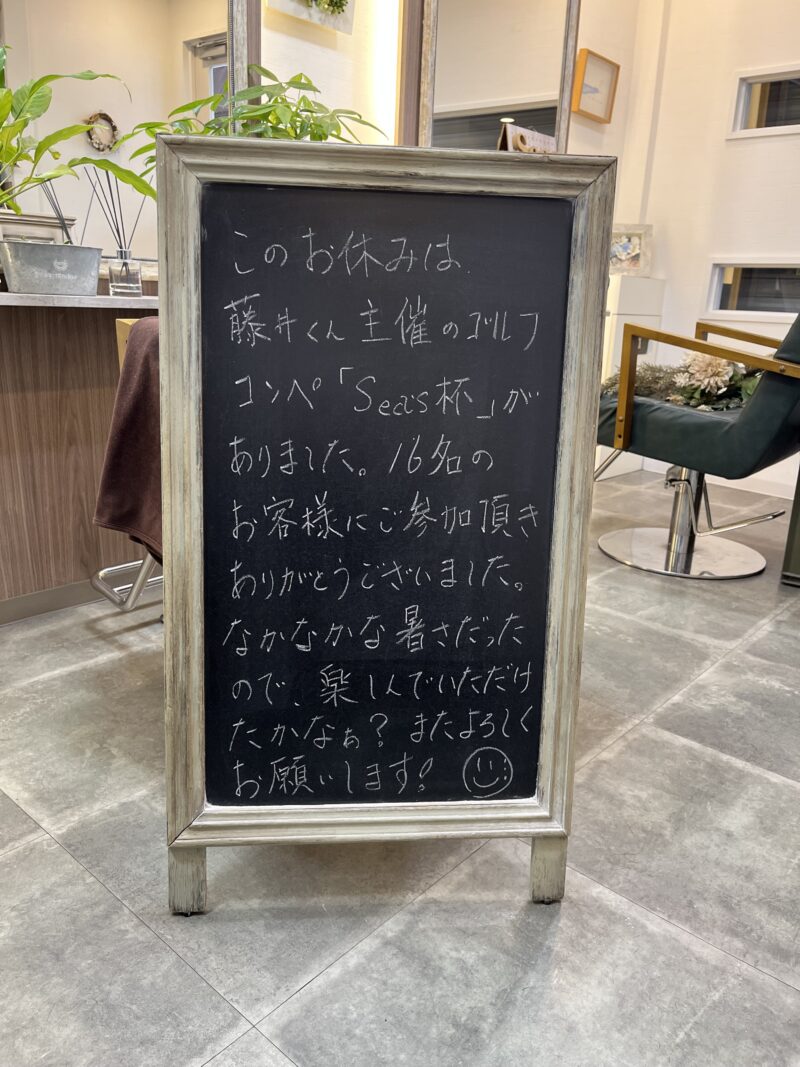 このお休みは、
藤井くん主催のゴルフ
コンペ「Sea's杯」が
ありました。16名の
お客様にご参加頂き
ありがとうございました。
なかなかな暑さだった
ので、楽しんでいただけ
たかなぁ？またよろしく
お願いします!